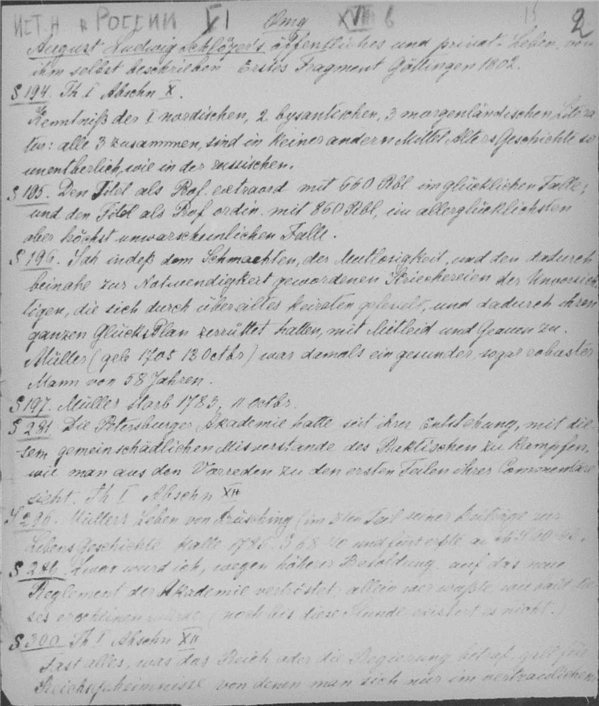 ИСТ. Н В РОССИИ XI Отд XVIII в 2
August Ludwig Schlözer's öffentliches und privat-Leben, von
ihm selbst beschrieben Erstes Fragment Göttingen 1802.
S 194. Th I Abschn X.
Kenntniß der I nordischen, 2 bysantischen, 3 morgenländischen Litera-
tur: alle 3 zusammen, sind in keiner andern Mittel Alters Geschichte so
unentberlich, wie in der russischen.
S 195. Den Titel als Prof. extraord mit 660 Rbl im glücklichen Falle;
und den Titel als Prof ordin. mit 860 Rbl, im allerglücklichsten
aber höchst unwarscheinlichen Falle.
S 196. Sah indeß dem Schmachten, der Mutlosigkeit, und den dadurch
beinahe zur Notwendigkeit gewordenen Kriechereien der Unvorsich-
tigen, die sich durch übereiltes Heiraten gefesselt, und dadurch ihren
ganzen Glücks Plan zerrüttet hatten, mit Mitleid und Grauen zu.
Müller (geb 1705 18 Octbr) war damals ein gesunder, sogar robuster
Mann von 58 Jahren.
S 197. Müller starb 1783, 11 octbr.
S 291 Die Petersburger Akademie hatte seit ihrer Entstehung, mit die-
sem gemeinschädlichen Misverstande des Praktischen zu kämpfen,
wie man aus den Vorreden zu den ersten Teilen ihrer Commentare
sieht. Th I Abschn XII
S 296. Müllers Leben von Büsching (im 3ten Teil seiner Beiträge zur
Lebens Geschichte Halle 1785. S
S 286. Zwar wurd ich, wegen höherer Besoldung, auf das neue
Reglement der Akademie vertröstet: allein wer wußte, wie bald die-
ses erschiene würde (noch bis diese Stunde existirt es nicht.)
S 300 Th I Abschn XII
Fast alles, was das Reich oder die Regierung betraf, galt für
Reichsgeheimnisse von denen man sich nur im vertraulichen